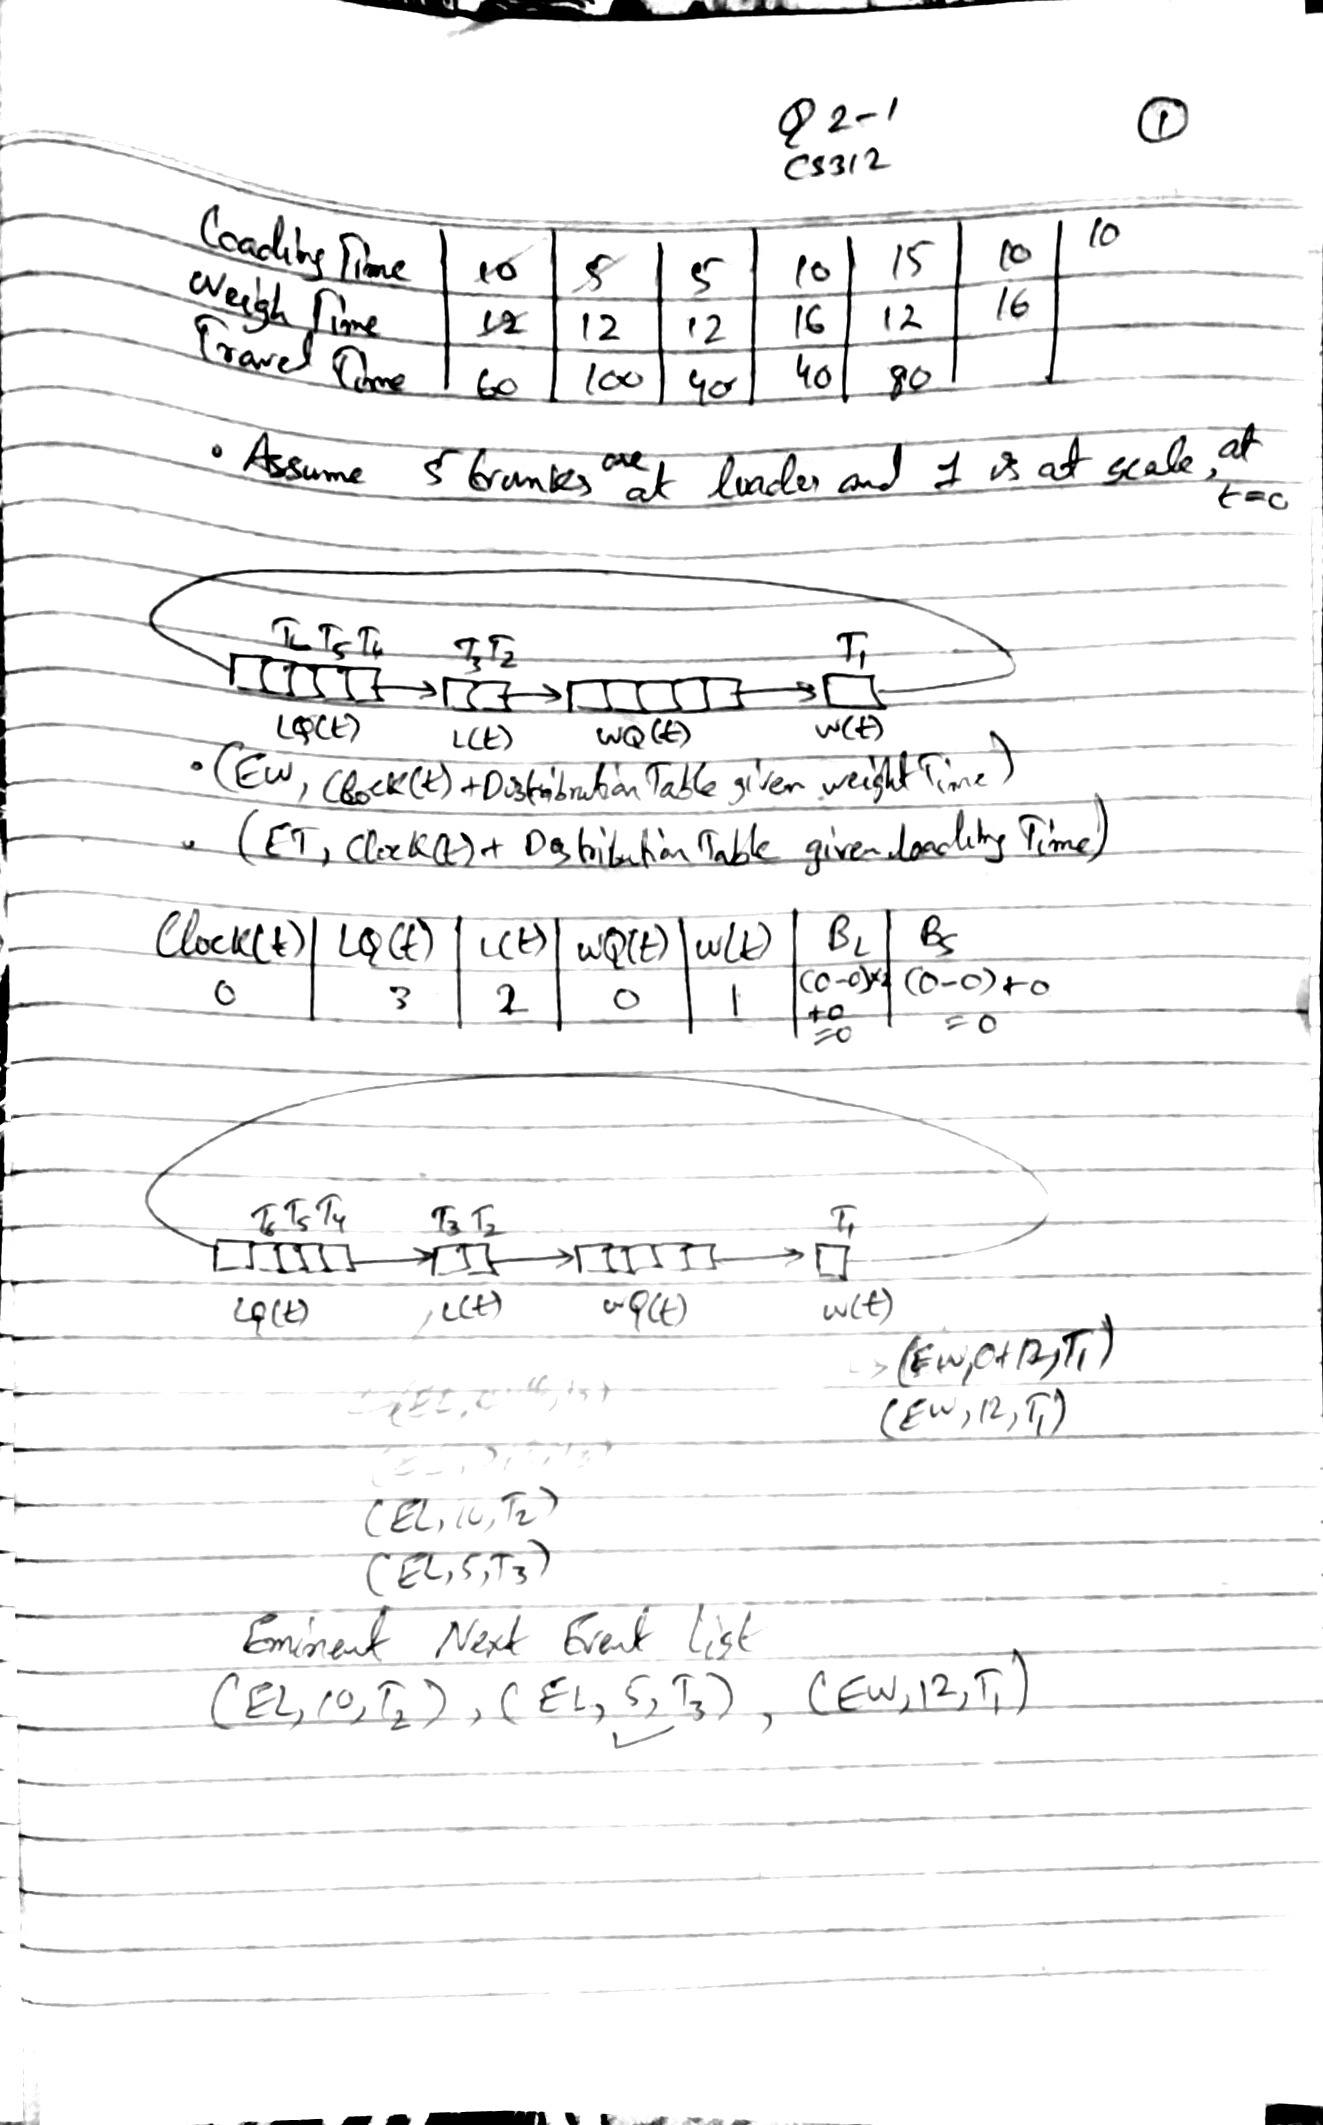 Q 2-1
CS312
①
Loading Time | 10 | 5 | 5 | 10 | 15 | 10 | 10
Weigh Time | 12 | 12 | 12 | 16 | 12 | 16
Travel Time | 60 | 100 | 40 | 40 | 80
• Assume 5 trunks are at loader and 1 is at scale, at t=0
T6 T5 T4 T3 T2 T1
LQ(t) L(t) WQ(t) W(t)
• (EW, Clock(t) + Distribution Table given weight Time)
• (ET, Clock(t) + Distribution Table given loading Time)
Clock(t) | LQ(t) | L(t) | WQ(t) | W(t) | BL | BS
0 | 3 | 2 | 0 | 1 | (0-0)*2 +0 =0 | (0-0)+0 =0
T6 T5 T4 T3 T2 T1
LQ(t) L(t) WQ(t) W(t)
(EW, 0+12, T1)
(EW, 12, T1)
(EL, 10, T2)
(EL, 5, T3)
Eminent Next Event List
(EL, 10, T2), (EL, 5, T3), (EW, 12, T1)